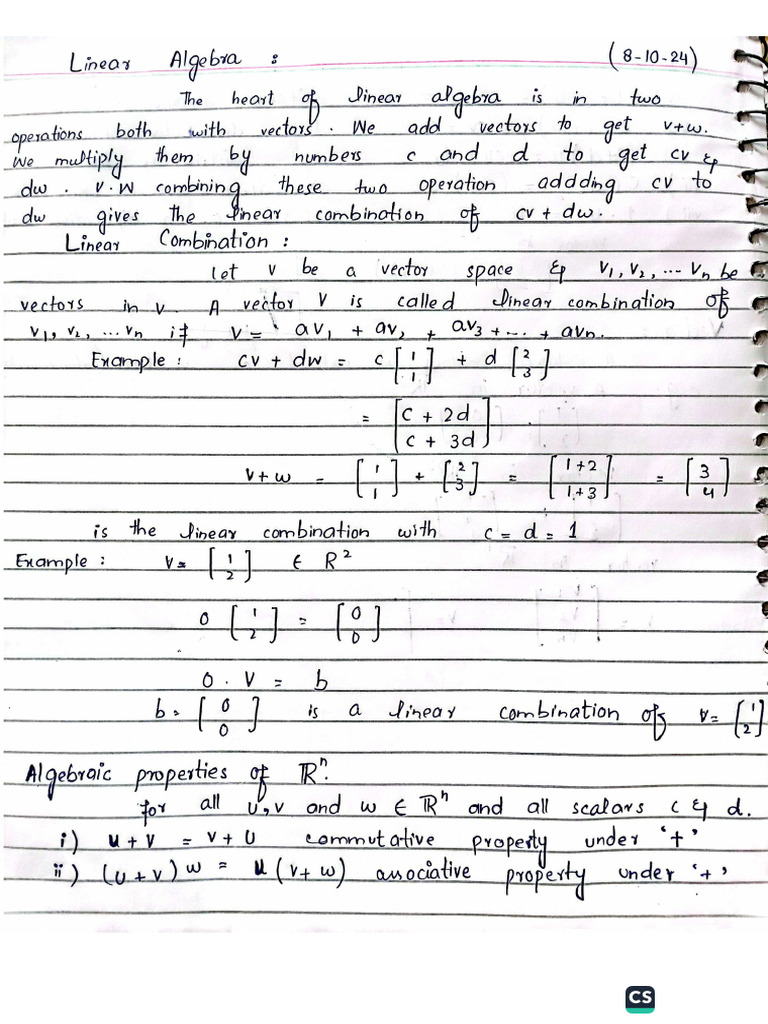 Linear Algebra : (8-10-24)
The heart of linear algebra is in two
operations both with vectors. We add vectors to get v+w.
We multiply them by numbers c and d to get cv &
dw. V.W combining these two operation addding cv to
dw gives the linear combination of cv + dw.
Linear Combination :
Let v be a vector space & v₁, v₂, ... vn be
vectors in v. A vector V is called linear combination of
v₁, v₂, ... vn if v = av₁ + av₂ + av₃ + ... + avn.
Example : cv + dw = c [1 1] + d [2 3]
= [c + 2d c + 3d]
v + w = [1 1] + [2 3] = [1+2 1+3] = [3 4]
is the linear combination with c = d = 1
Example : v = [1 2] ∈ R²
0 [1 2] = [0 0]
0 . V = b
b = [0 0] is a linear combination of v = [1 2]
Algebraic properties of ℝⁿ.
for all u, v and w ∈ ℝⁿ and all scalars c & d.
i) u + v = v + u commutative property under '+'
ii) (u + v) w = u (v + w) associative property under '+'
CS